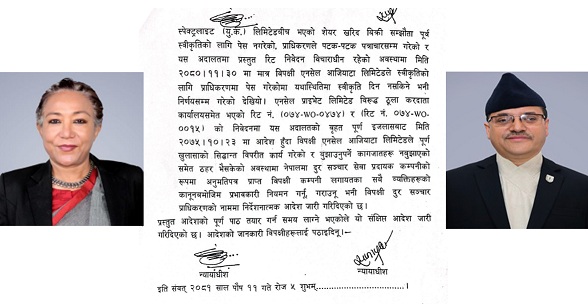 स्पेक्ट्रलाइट (यु.के.) लिमिटेडबीच भएको शेयर खरिद बिक्री सम्झौता पूर्व
स्वीकृतिको लागि पेस नगरेको, प्राधिकरणले पटक-पटक पत्राचारसम्म गरेको र
यस अदालतमा प्रस्तुत रिट निवेदन विचाराधीन रहेको अवस्थामा मिति
२०८०।११।३० मा मात्र विपक्षी एनसेल आजियाटा लिमिटेडले स्वीकृतिको
लागि प्राधिकरणमा पेस गरेकोमा यथास्थितिमा स्वीकृति दिन नसकिने भनी
निर्णयसम्म गरेको देखियो। एनसेल प्राइभेट लिमिटेड विरूद्ध ठूला करदाता
कार्यालयसमेत भएको रिट नं. (०७४-WO-०४७४) र (रिट नं. ०७४-WO-
००१५) को निवेदनमा यस अदालतको बृहत पूर्ण इजलासबाट मिति
२०७५।१०।२३ मा आदेश हुँदा विपक्षी एनसेल आजियाटा लिमिटेडले पूर्ण
खुलासाको सिद्धान्त विपरीत कार्य गरेको र बुझाउनुपर्ने कागजातहरू नबुझाएको
समेत ठहर भैसकेको अवस्थामा नेपालमा दुर सञ्चार सेवा प्रदायक कम्पनीको
रूपमा अनुमतिपत्र प्राप्त विपक्षी कम्पनी लगायतका सबै व्यक्तिहरूको
कानूनबमोजिम प्रभावकारी नियमन गर्नू, गराउनू भनी विपक्षी दुर सञ्चार
प्राधिकरणको नाममा निर्देशनात्मक आदेश जारी गरिदिएको छ।
प्रस्तुत आदेशको पूर्ण पाठ तयार गर्न समय लाग्ने भएकोले यो संक्षिप्त आदेश जारी
गरिदिएको छ। आदेशको जानकारी विपक्षीहरूलाई पठाइदिनू।-
न्यायाधीश
न्यायाधीश
इति संवत् २०८१ साल पौष ११ गते रोज ५ शुभम्..................................।